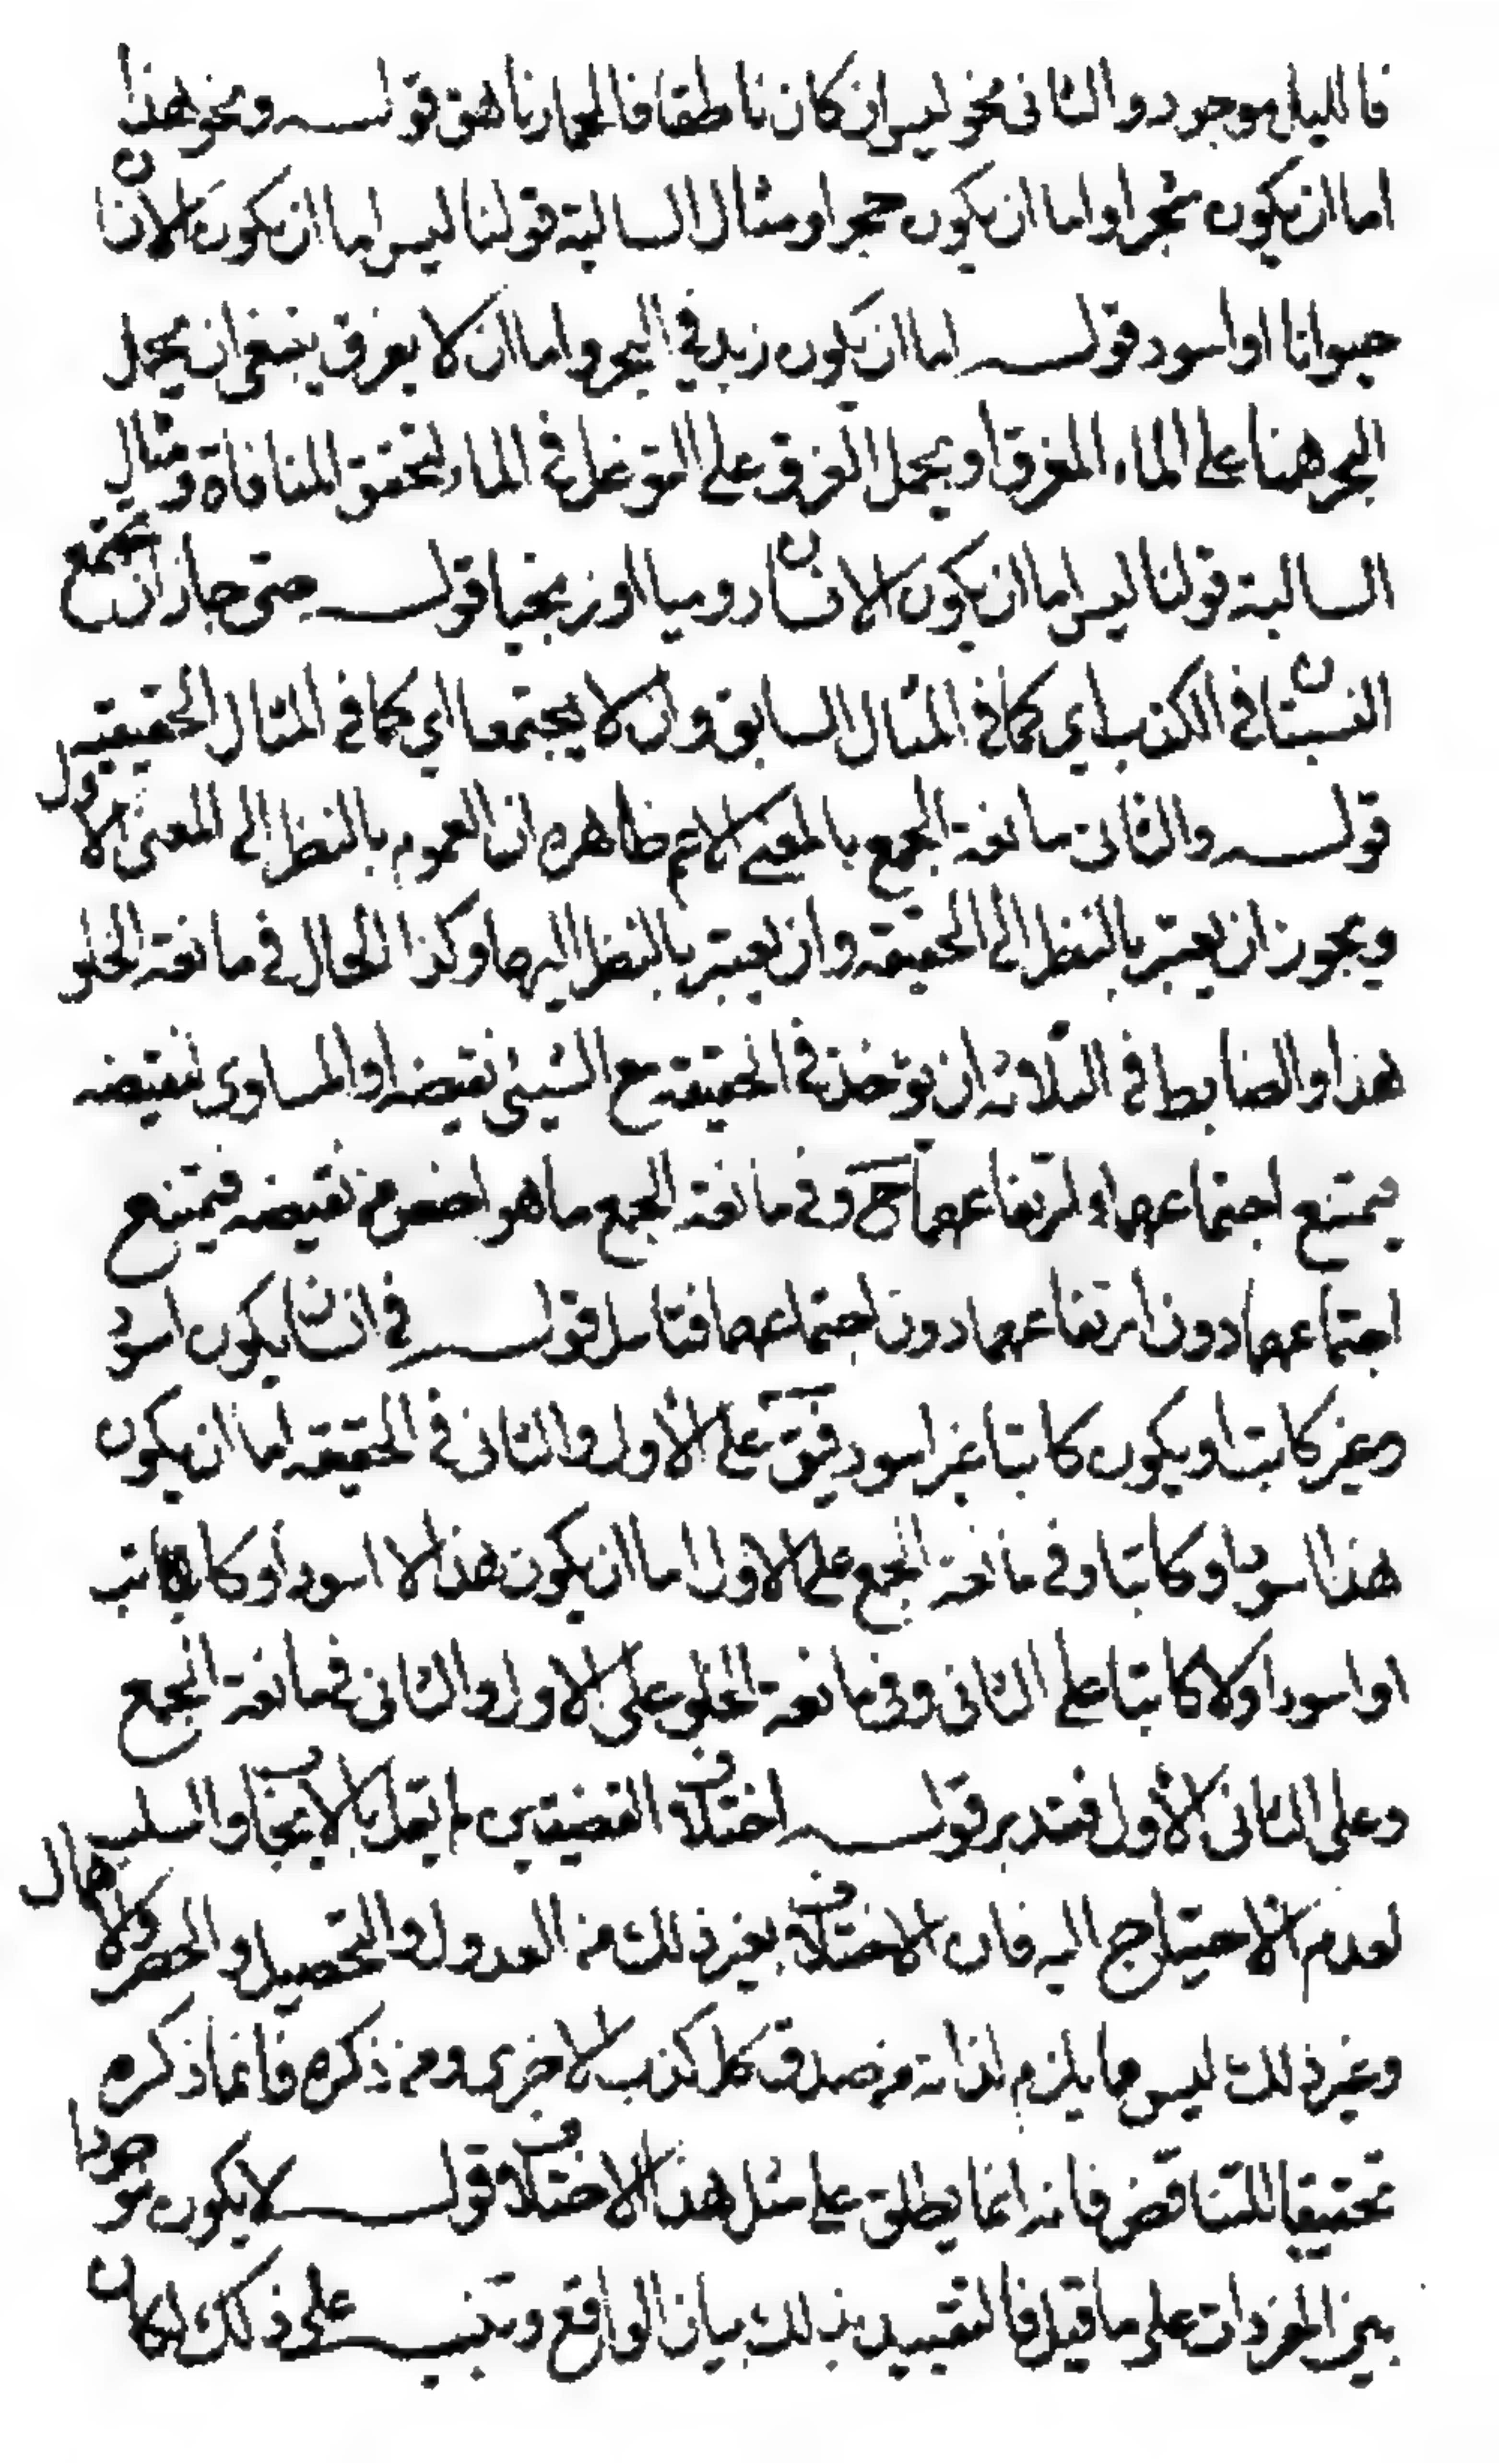 فالليل موجود والثانى نحو ليس ان كان ناطقا فالحمار ناهق قوله ونحو هذا
اما ان يكون شجرا واما ان يكون حجرا ومثال السالبة قولنا ليس اما ان يكون الانسان
حيوانا او اسود قوله اما ان يكون زيد فى البحر واما ان لا يغرق ينبغى ان يحمل
البحر هنا على الماء المغرق او يحمل الغرق على التوغل فى الماء لتحقق المنافاة ومثال
السالبة قولنا ليس اما ان يكون الانسان روميا او زنجيا قوله حتى جاز ان تجتمع
النسبتان فى الكذب اى كما فى المثال السابق وان لا يجتمعا اى كما فى المثال الحقيقيه
قوله والثانى مانعة الجمع بالمعنى الاعم ظاهره ان العموم بالنظر الى المعنى الاول
ويجوز ان يعتبر بالنظر الى الحقيقه وان يعتبر بالنظر اليهما وكذا الحال فى مانعة الخلو
هذا والضابط فى الثلاثه ان يؤخذ فى الحقيقه مع الشيئ نقيضه او المساوى لنقيضه
فيمتنع اجتماعهما وارتفاعهما ح وفى مانعة الجمع ما هو اخص من نقيضه فيمتنع
اجتماعهما دون ارتفاعهما دون اجتماعهما فتامل قوله فى انسان يكون اسود
وغير كاتب او يكون كاتبا غير اسود فيق على الأول والثانى فى الحقيقه اما ان يكون
هذا اسود او كاتبا وفى مانعة الجمع على الاول اما ان يكون هذا لا اسود أو كاتب
او اسود او لا كاتبا على الثانى وفى مانعة الخلو على الاول والثانى فى مانعة الجمع
وعلى الثانى الأول فتدبر قوله اختلاف القضيتين لم يقل بالايجاب والسلب
لعدم الاحتياج اليه فان الاختلاف بغير ذلك من العدول والتحصيل والحصر والاهمال
وغير ذلك ليس مما يلزم لذاته من صدق كل كذب الاخرى ومن ذكره فانما ذكره
تحقيقا للتناقض فانه انما يطلق على مثل هذا الاختلاف قوله لا يكون موجودا
بين المفردات على ما قيل فالتقييد بذلك بيان الواقع وتنبيه على ذلك لمكان